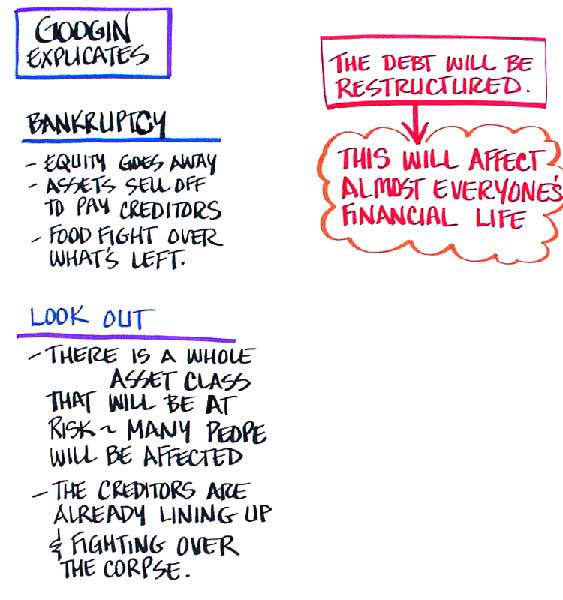 GOOGIN
EXPLICATES
BANKRUPTCY
- EQUITY GOES AWAY
- ASSETS SELL OFF
TO PAY CREDITORS
- FOOD FIGHT OVER
WHAT'S LEFT.
LOOK OUT
- THERE IS A WHOLE
ASSET CLASS
THAT WILL BE AT
RISK ~ MANY PEOPE
WILL BE AFFECTED
- THE CREDITORS ARE
ALREADY LINING UP
& FIGHTING OVER
THE CORPSE.
THE DEBT WILL BE
RESTRUCTURED.
THIS WILL AFFECT
ALMOST EVERYONE'S
FINANCIAL LIFE